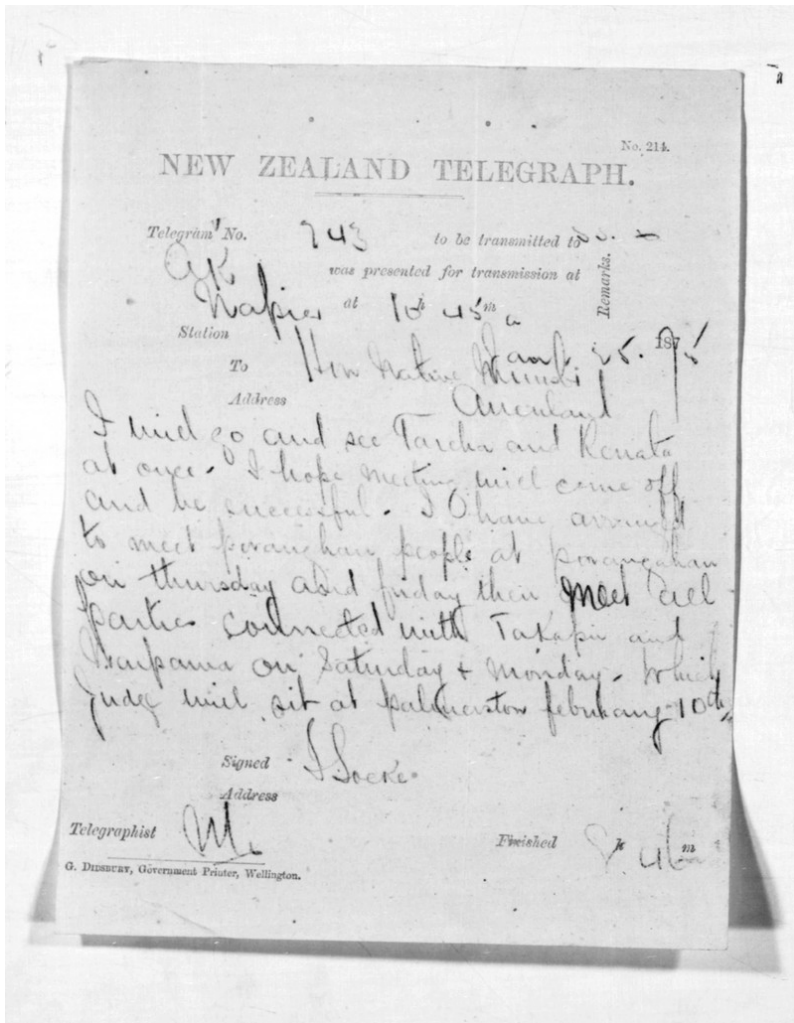 No. 214.
NEW ZEALAND TELEGRAPH.
Telegram No. 743 to be transmitted to
AK was presented for transmission at
Remarks.
Napier at 10 h 45 m a
Station Jany 25. 1875
To Hon Native Minister
Address Auckland
I will go and see Tareha and Renata
at once. I hope meeting will come off
and be successful. I have arranged
to meet porangahau people at porangahau
on thursday and friday then meet all
parties connected with Takapu and
on Saturday & Monday. Which
Judge will sit at palmerston february 10th
Signed S Locke.
Address
Telegraphist
Finished h 46 m
G. DIDSBURY, Government Printer, Wellington.